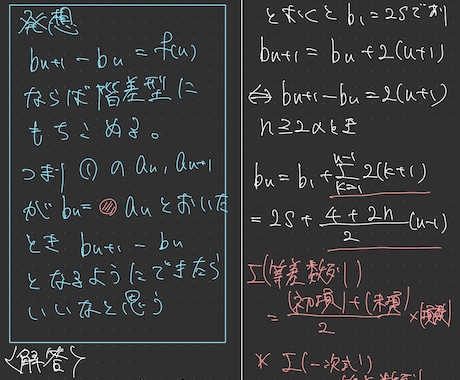 発想
bn+1 - bn = f(n)
ならば階差型に
もちこめる。
つまり ① の an, an+1
が bn = an とおいた
とき bn+1 - bn
となるようにできたら
いいなと思う
<解答>
とおくと b1 = 25 であり
bn+1 = bn + 2(n+1)
⇔ bn+1 - bn = 2(n+1)
n≧2のとき
bn = b1 + Σ[k=1→n-1] 2(k+1)
= 25 + (4+2n)/2 (n-1)
Σ(等差数列)
= ((初項)+(末項))/2 × (項数)
* Σ(一次式)